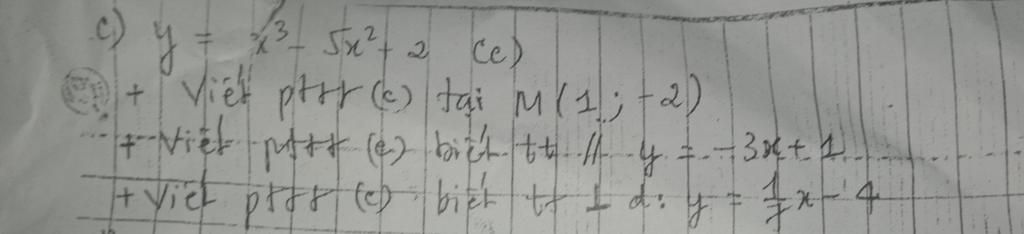 c) y = x³ - 5x² + 2 (c)
+ Viết pttt (c) tại M(1; -2)
+ Viết pttt (c) biết tt // y = -3x + 1
+ Viết pttt (c) biết tt ⊥ d: y = 1/7 x - 4